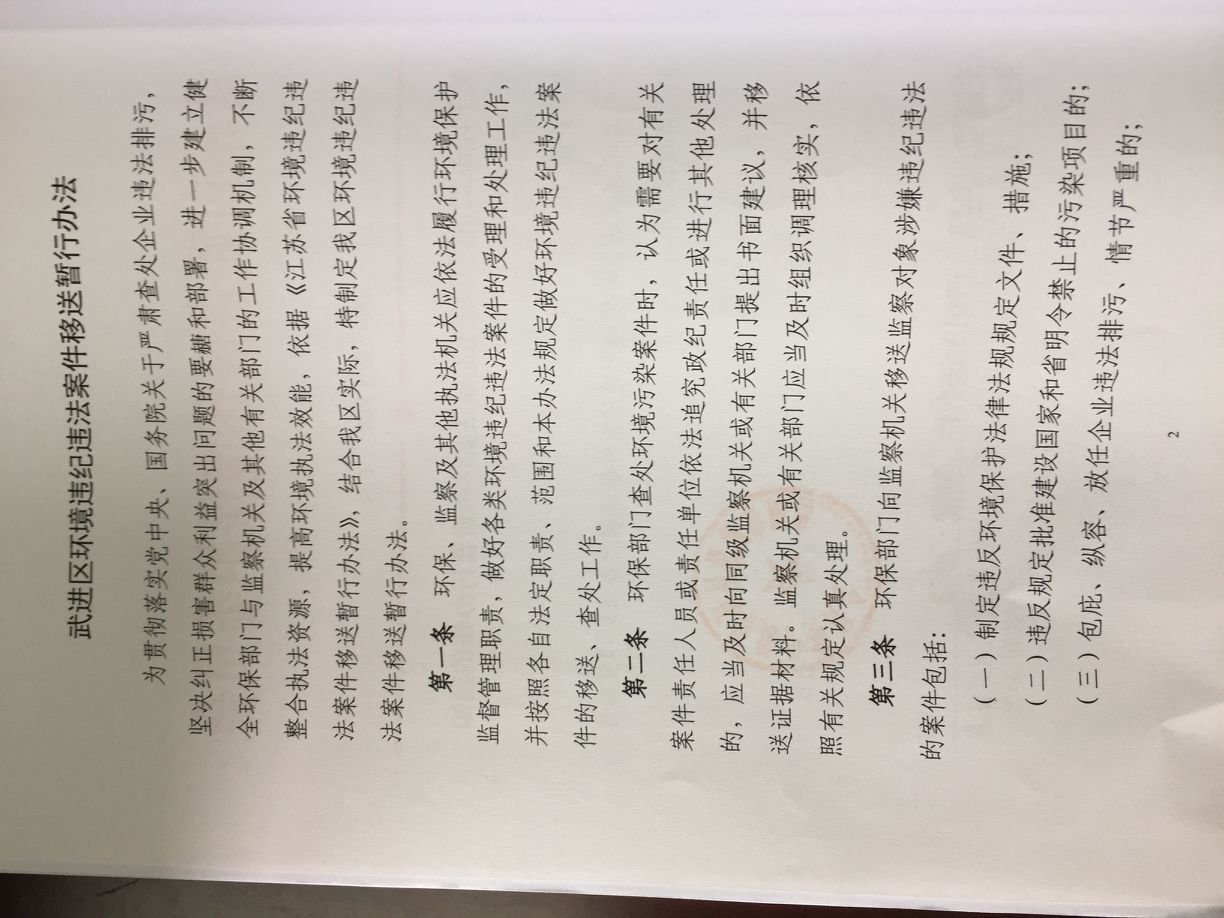 武进区环境违纪违法案件移送暂行办法
为贯彻落实党中央、国务院关于严肃查处企业违法排污，
坚决纠正损害群众利益突出问题的要求和部署，进一步建立健
全环保部门与监察机关及其他有关部门的工作协调机制，不断
整合执法资源，提高环境执法效能，依据《江苏省环境违纪违
法案件移送暂行办法》，结合我区实际，特制定我区环境违纪违
法案件移送暂行办法。
第一条 环保、监察及其他执法机关应依法履行环境保护
监督管理职责，做好各类环境违纪违法案件的受理和处理工作，
并按照各自法定职责、范围和本办法规定做好环境违纪违法案
件的移送、查处工作。
第二条 环保部门查处环境污染案件时，认为需要对有关
案件责任人员或责任单位依法追究政纪责任或进行其他处理
的，应当及时向同级监察机关或有关部门提出书面建议，并移
送证据材料。监察机关或有关部门应当及时组织调理核实，依
照有关规定认真处理。
第三条 环保部门向监察机关移送监察对象涉嫌违纪违法
的案件包括：
（一）制定违反环境保护法律法规规定文件、措施；
（二）违反规定批准建设国家和省明令禁止的污染项目的；
（三）包庇、纵容、放任企业违法排污、情节严重的；
2